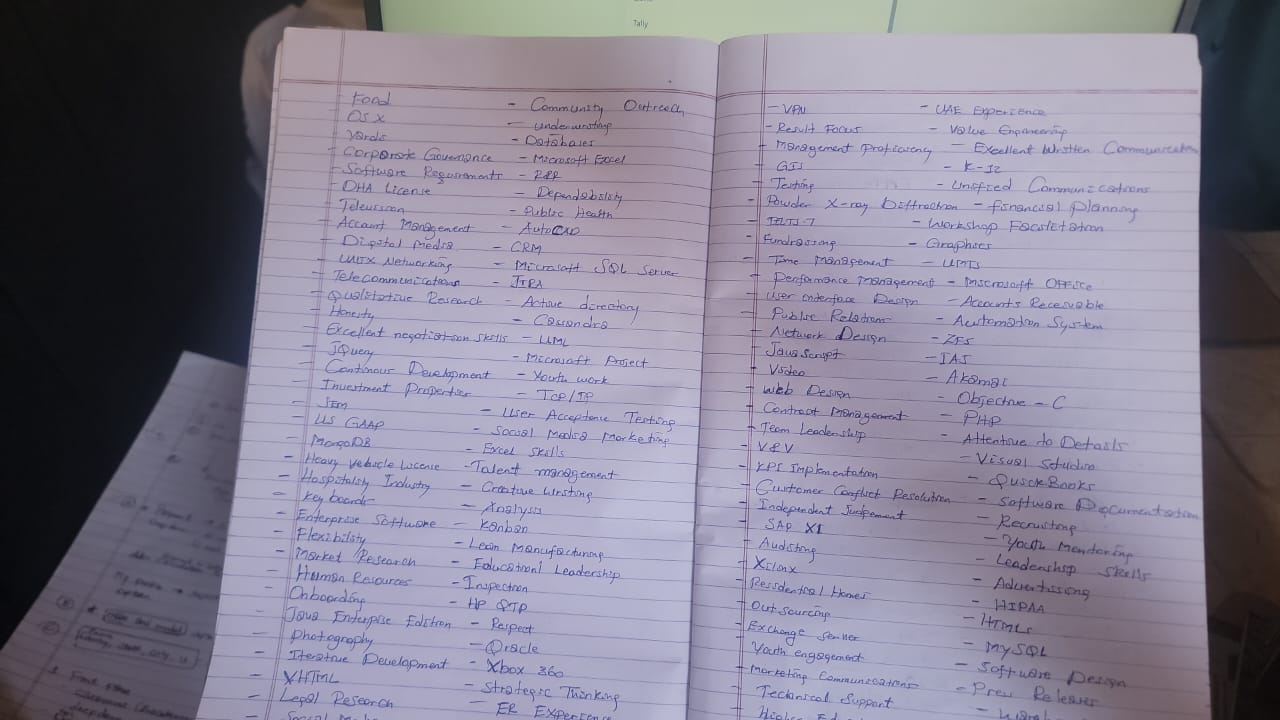 Tally
- Food
- OS X
- Yardi
- Corporate Governance
- Software Requirements
- DHA License
- Television
- Account Management
- Digital Media
- UNIX Networking
- Telecommunications
- Qualitative Research
- Honesty
- Excellent negotiation skills
- JQuery
- Continous Development
- Investment Properties
- SEM
- US GAAP
- MongoDB
- Heavy vehicle License
- Hospitality Industry
- Key boards
- Enterprise Software
- Flexibility
- Market Research
- Human Resources
- Onboarding
- Java Enterprise Edition
- Photography
- Iterative Development
- XHTML
- Legal Research
- Community Outreach
- underwriting
- Databases
- Microsoft Excel
- Dependability
- Public Health
- AutoCAD
- CRM
- Microsoft SQL Server
- JIRA
- Active directory
- Cassandra
- UML
- Microsoft Project
- Youth work
- TCP/IP
- User Acceptance Testing
- Social Media Marketing
- Excel skills
- Talent management
- Creative Writing
- Analysis
- Kanban
- Lean Manufacturing
- Educationl Leadership
- Inspection
- HP QTP
- Respect
- Oracle
- Xbox 360
- Strategic Thinking
- ER Experience
- VPN
- Result Focus
- Management Proficiency
- GIS
- Testing
- Powder X-ray Diffraction
- IELTS-7
- Fundraising
- Time Management
- Performance Management
- User interface Design
- Public Relations
- Network Design
- JavaScript
- Video
- Web Design
- Contract Management
- Team Leadership
- V&V
- KPI Implementation
- Customer Conflict Resolution
- Independent Judgement
- SAP XI
- Auditing
- Xilinx
- Residential Homes
- Outsourcing
- Exchange Server
- Youth engagement
- Marketing Communications
- Technical Support
- UAE Experience
- Value Engineering
- Excellent Written Communication
- K-12
- Unified Communications
- Financial Planning
- Workshop Facilitation
- Graphics
- UMTS
- Microsoft Office
- Accounts Receivable
- Automation System
- ZFS
- IAS
- Akamai
- Objective-C
- PHP
- Attentive to Details
- Visual Studio
- QuickBooks
- Software Documentation
- Recruiting
- Youth Mentoring
- Leadership Skills
- Advertising
- HIPAA
- HTML5
- MySQL
- Software Design
- Press Releases